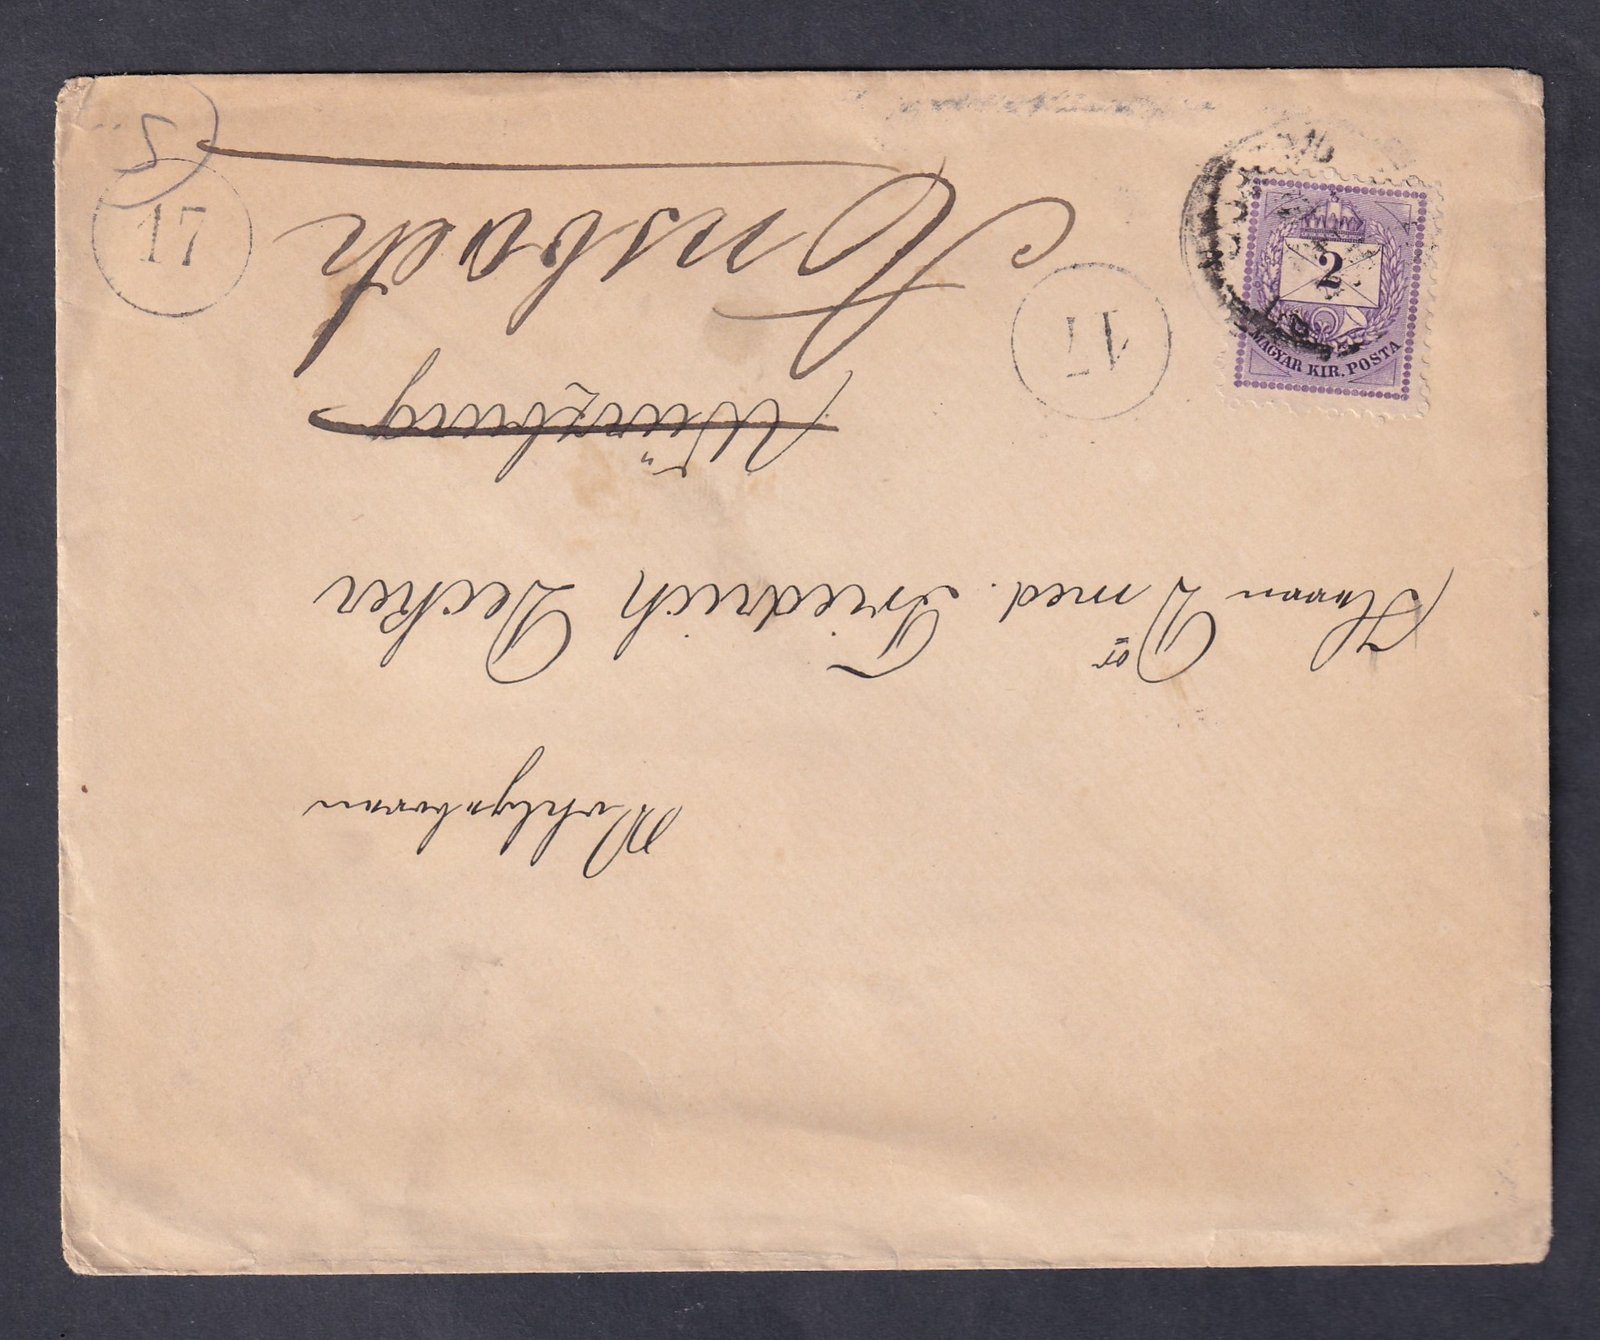 Wohlgeboren
Herrn Dr med. Friedrich Decker
Würzburg
Ansbach
17
17
5
2
MAGYAR KIR. POSTA